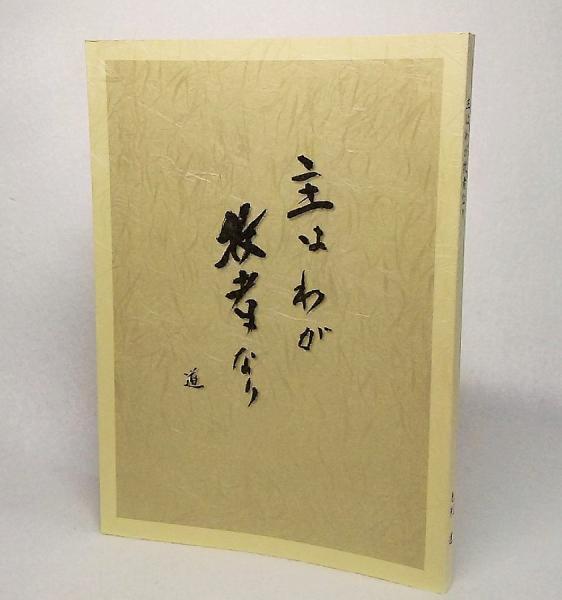 主はわが
牧者なり
道